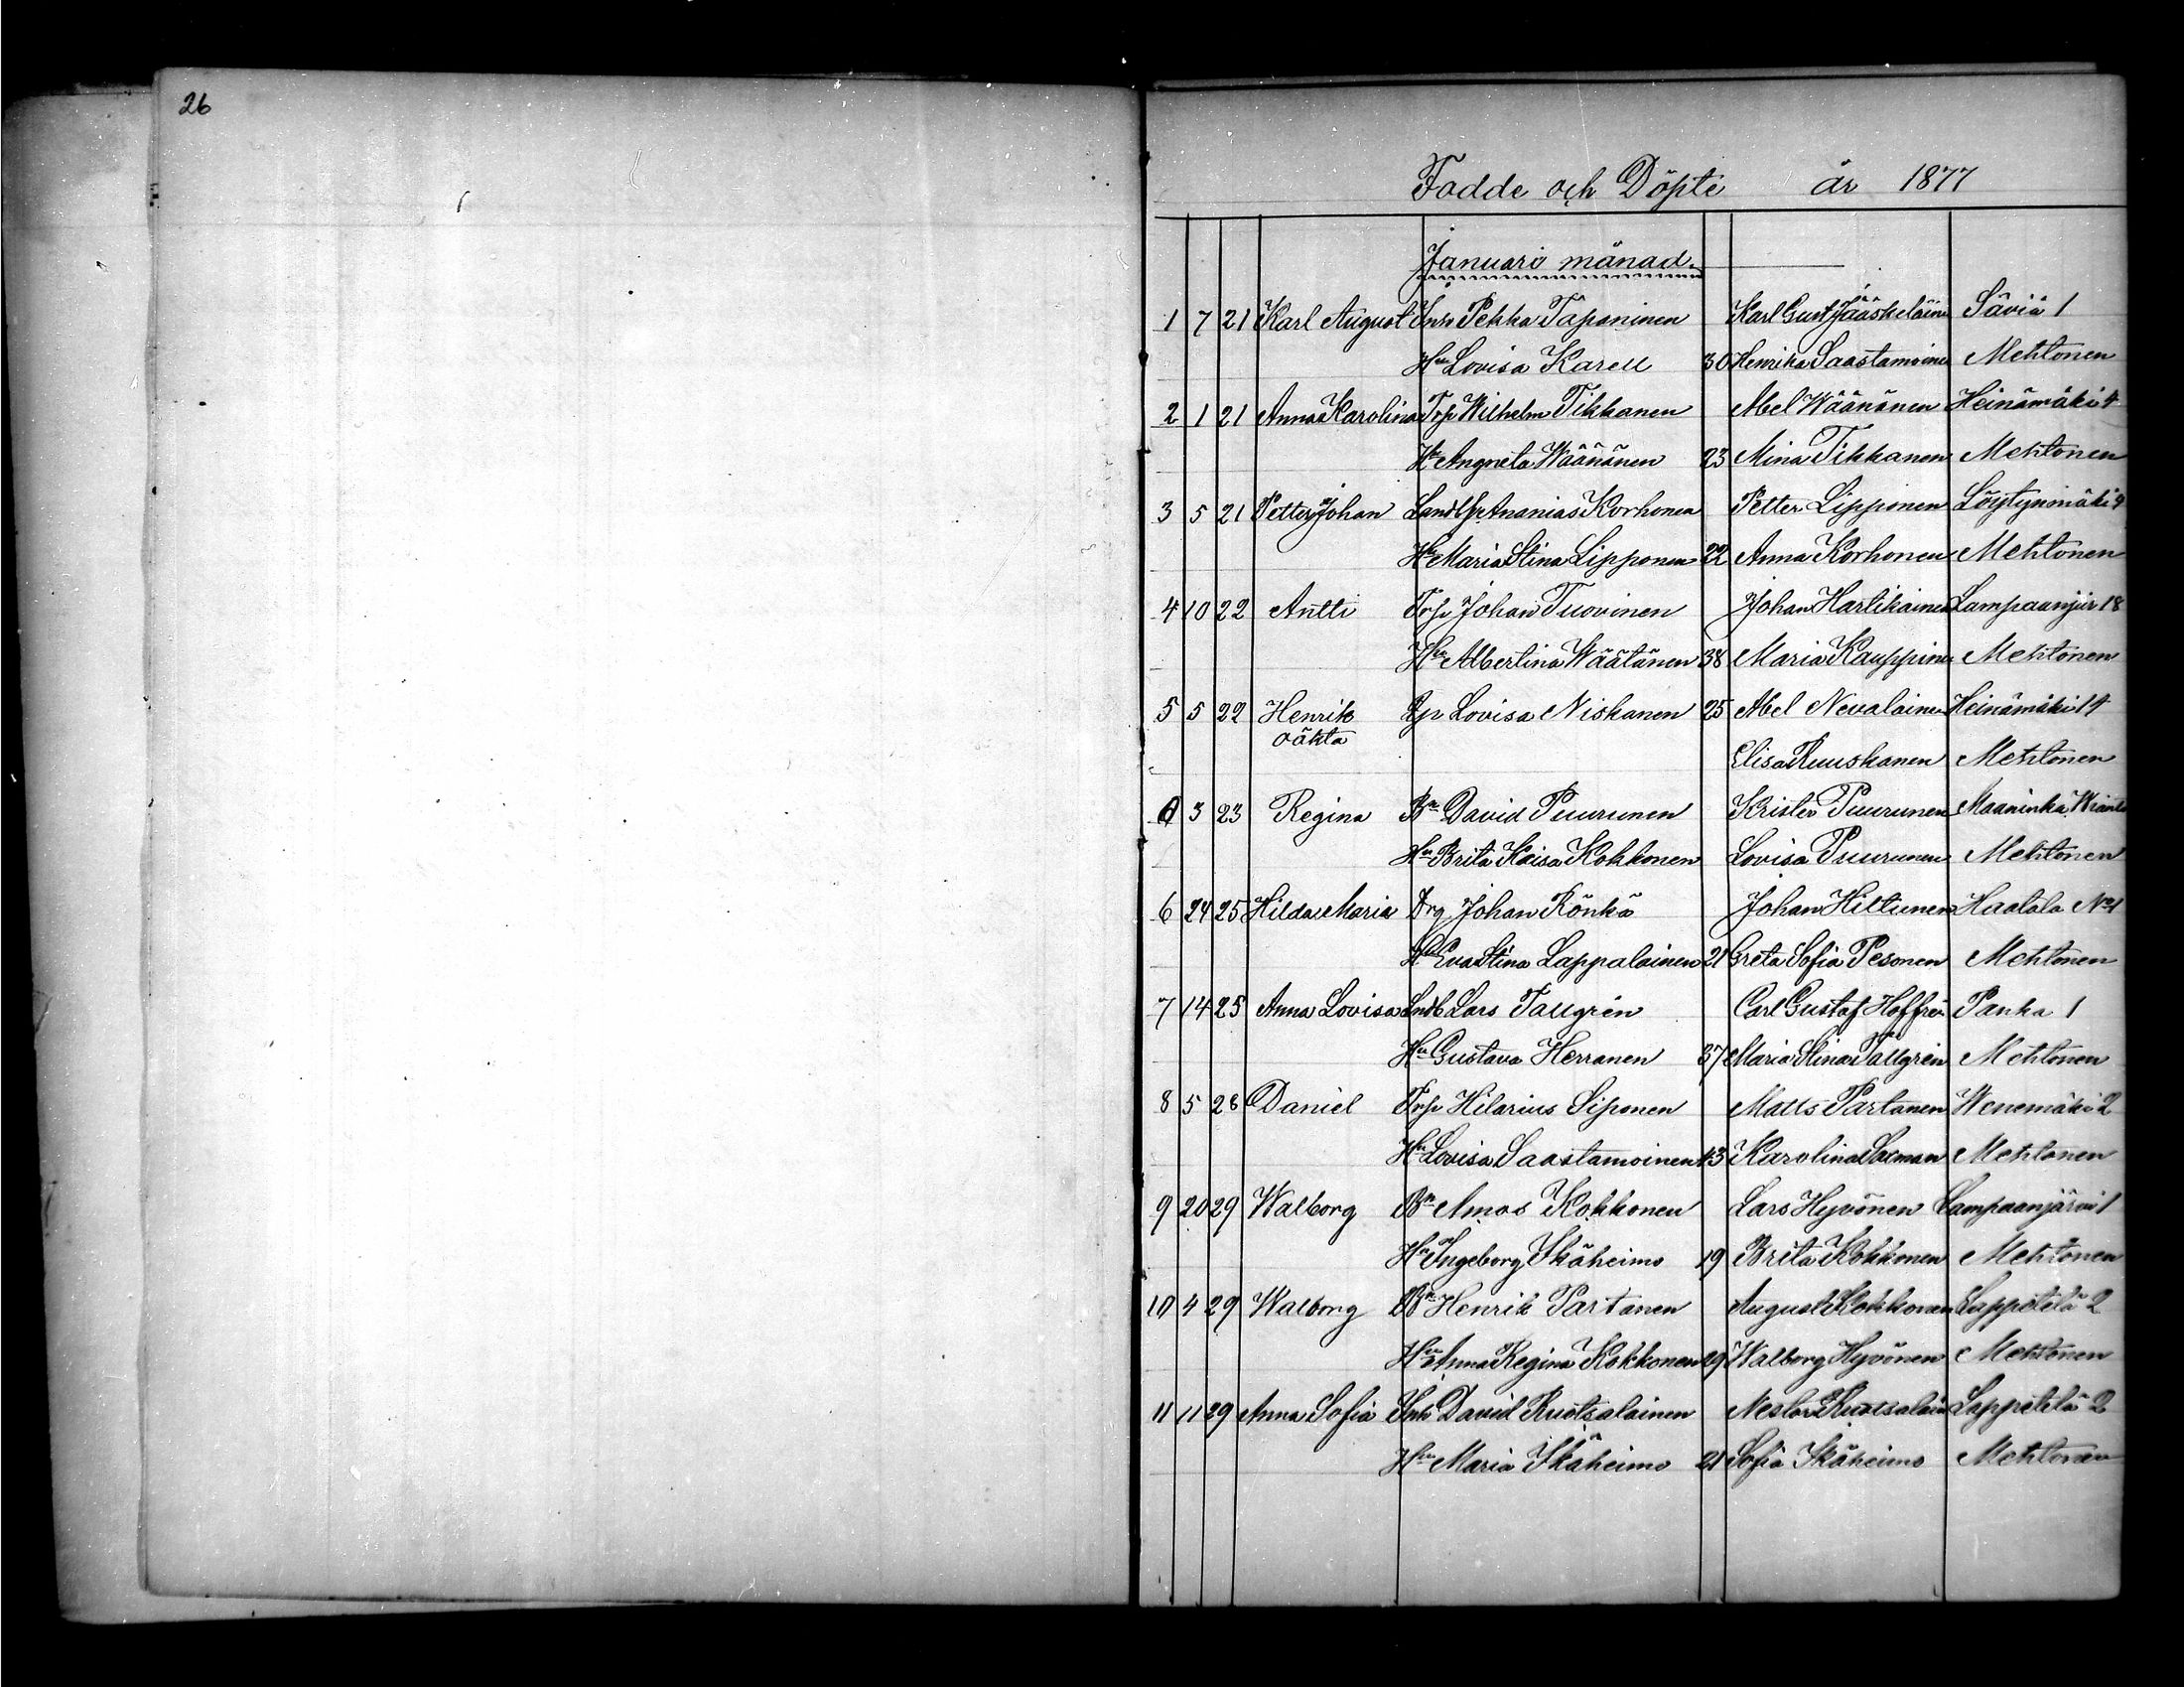 26
Fodde och Döpte år 1877
Januari månad.
1 7 21 Karl August Inh Pekka Taponinen Karl Gust Jääskeläinen Säviä 1
Hu Lovisa Karell 30 Henrika Saastamoinen Mehtonen
2 1 21 Anna Karolina Trp Wilhelm Tikkanen Abel Wäänänen Heinämäki 4
Hu Angneta Wäänänen 23 Mina Tikkanen Mehtonen
3 5 21 Petter Johan Landb Ananias Korhonen Petter Lipponen Löytynmäki 4
Hu Maria Stina Lipponen 22 Anna Korhonen Mehtonen
4 10 22 Antti Trp Johan Tuovinen Johan Hartikainen Lampaanjär 18
Hu Albertina Wäätänen 38 Maria Kauppinen Mehtonen
5 5 22 Henrik Lovisa Niskanen 25 Abel Nevalainen Heinämäki 14
oäkta
Elisa Ruuskanen Mehtonen
3 23 Regina Bn David Puurunen Krister Puurunen Maaninka
Hu Brita Kaisa Kokkonen Lovisa Puurunen Mehtonen
6 24 25 Hilda Maria Drg Johan Rönkä Johan Hiltunen Haatala No 1
Hu Eva Stina Lappalainen 21 Greta Sofia Pesonen Mehtonen
7 14 25 Anna Lovisa Lndb Lars Tallgrén Carl Gustaf Hoffrén Panka 1
Hu Gustava Herranen 37 Maria Stina Tallgrén Mehtonen
8 5 28 Daniel Trp Hilarius Siponen Matts Partanen Wenemäki 2
Hu Lovisa Saastamoinen 43 Karolina Mehtonen
9 20 29 Walborg Bn Amos Kokkonen Lars Hyvönen Lampaanjärvi 1
Hu Ingeborg Ikäheimo 19 Brita Kokkonen Mehtonen
10 4 29 Walborg Bn Henrik Partanen August Kokkonen Lappetelä 2
Hu Anna Regina Kokkonen 29 Walborg Hyvönen Mehtonen
11 11 29 Anna Sofia Inh David Ruotsalainen Nestor Ruotsalain Lappetelä 2
Hu Maria Ikäheimo 21 Sofia Ikäheimo Mehtonen